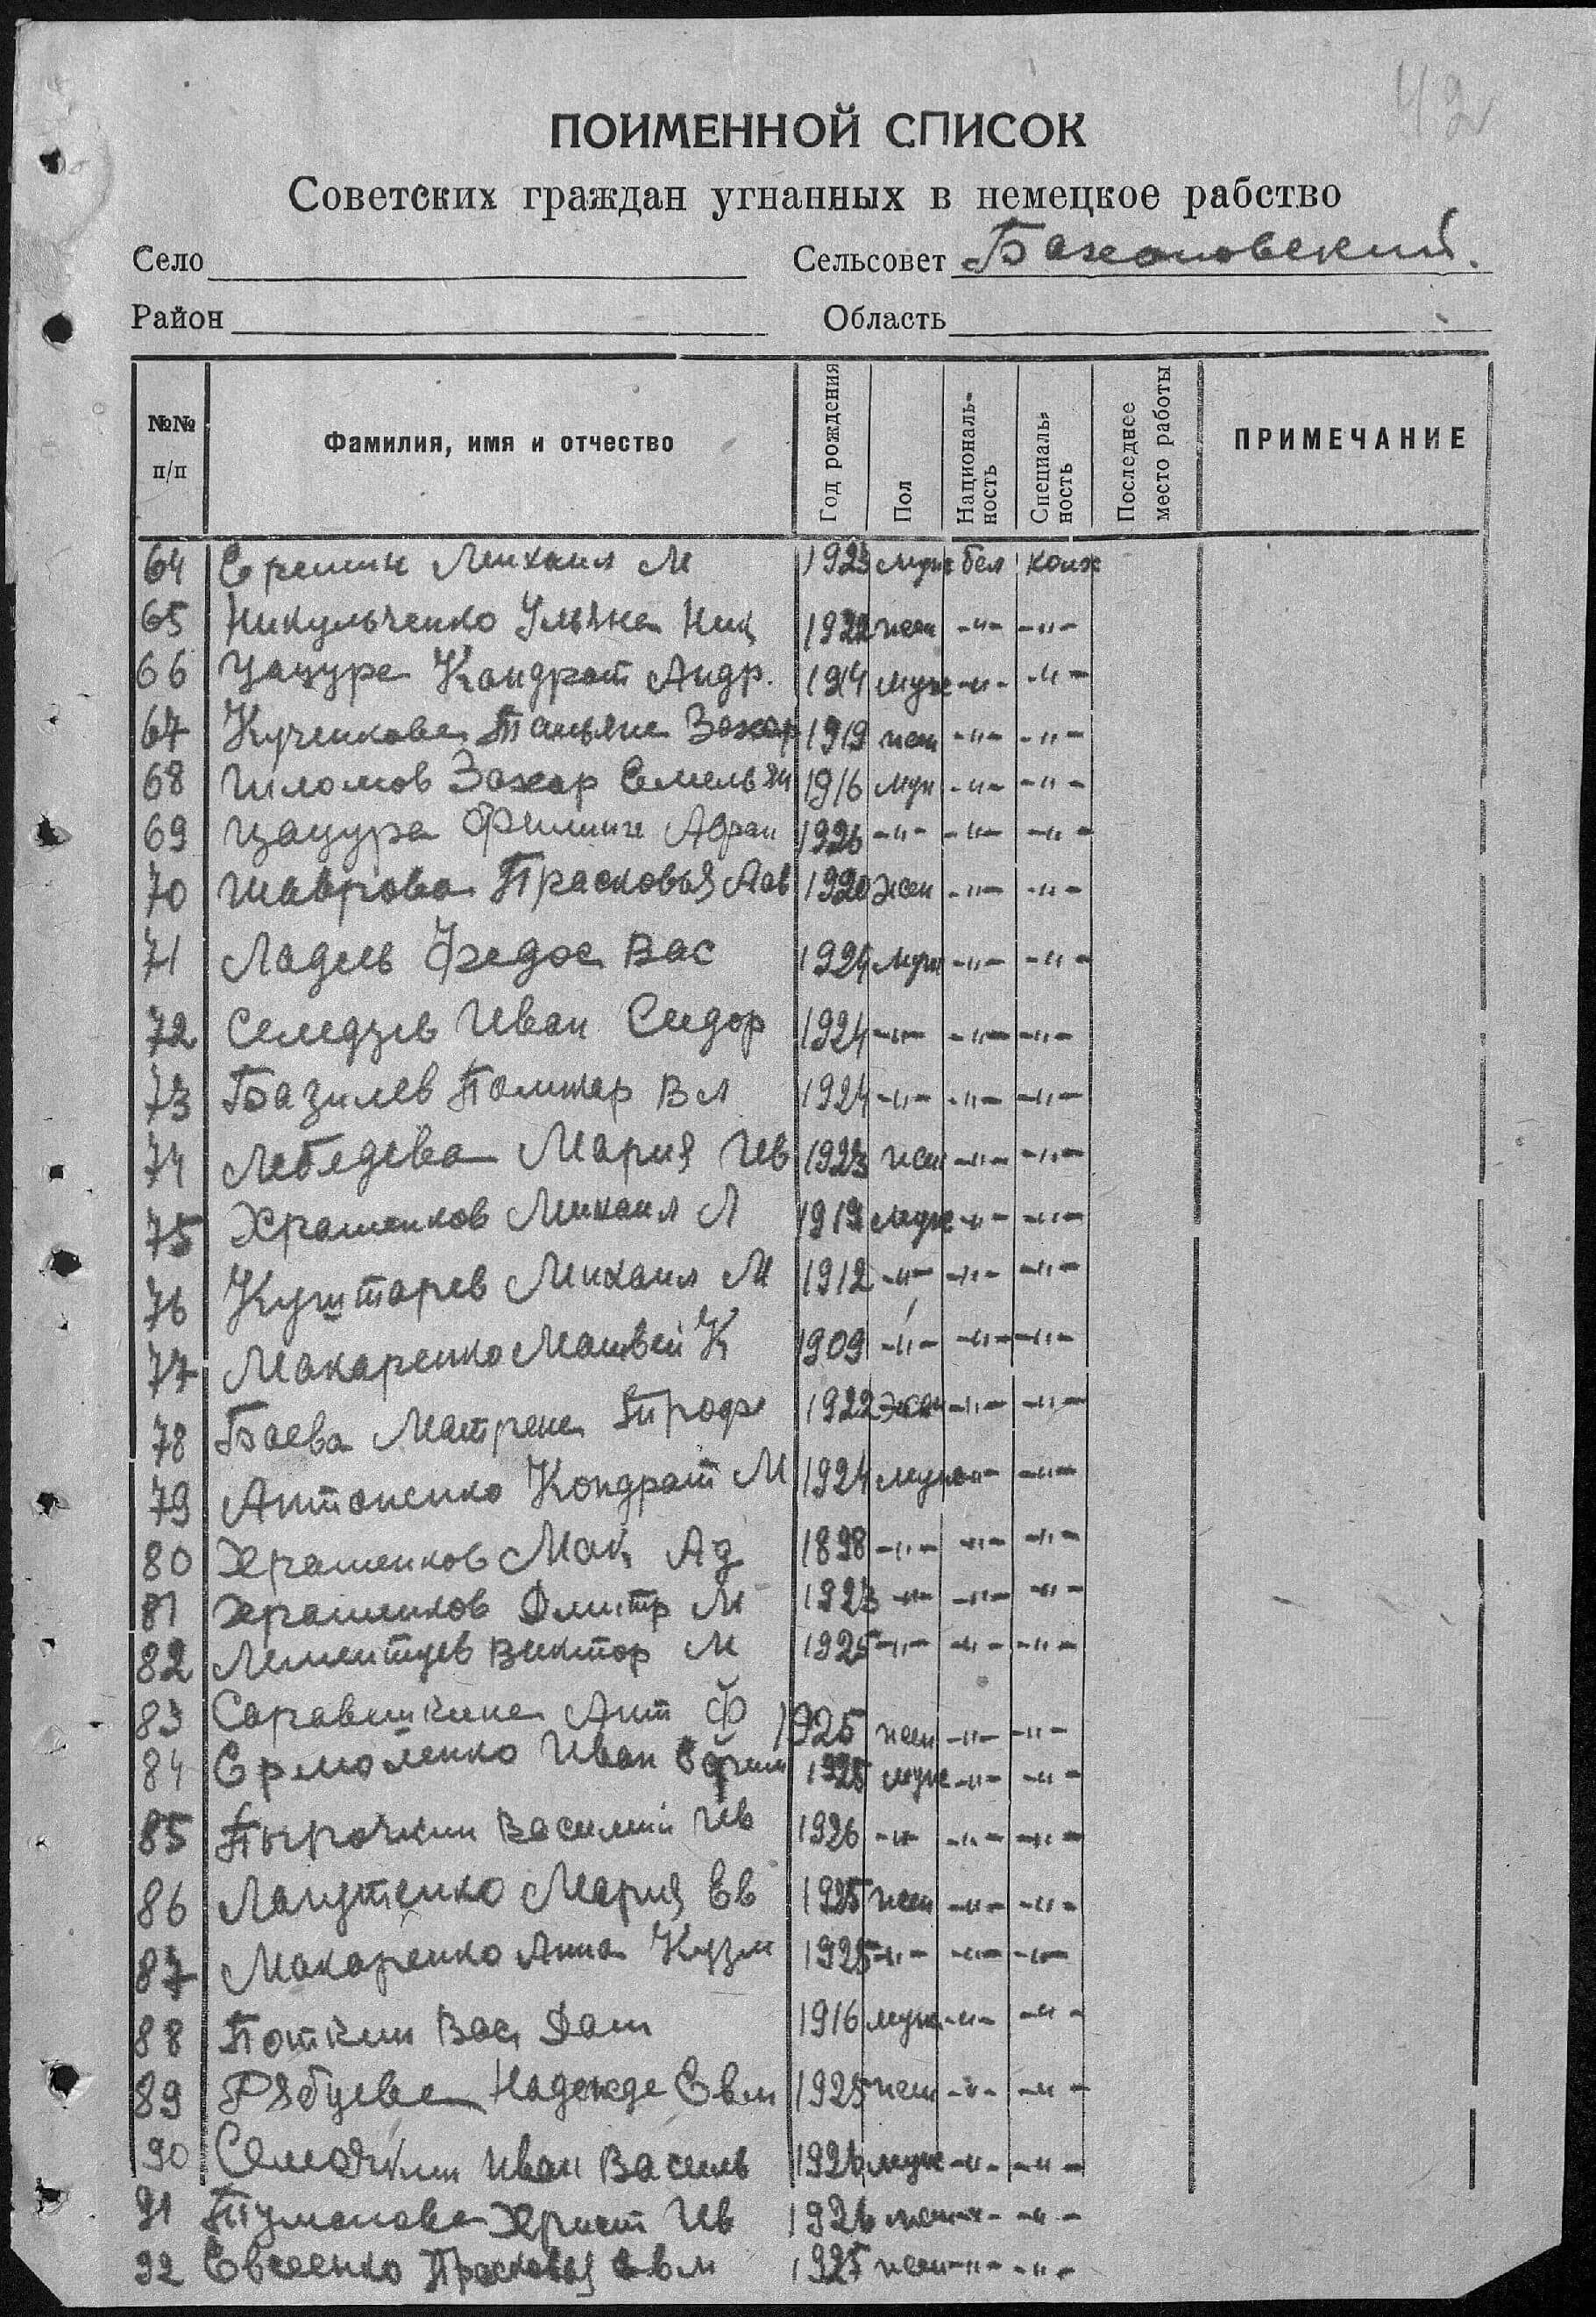 42
ПОИМЕННОЙ СПИСОК
Советских граждан угнанных в немецкое рабство
Село Сельсовет Бахановский.
Район Область
№№ п/п Фамилия, имя и отчество Год рождения Пол Националь-ность Специаль-ность Последнее место работы ПРИМЕЧАНИЕ
64 Еремин Михаил М 1923 муж бел колх
65 Никульченко Ульяна Ник 1922 жен -"- -"-
66 Цацура Кондрат Андр. 1914 муж -"- -"-
67 Кученкова Татьяна Захар 1919 жен -"- -"-
68 Шломов Захар Емельян 1916 муж -"- -"-
69 Цацура Филипп Афан 1926 -"- -"- -"-
70 Шаврова Прасковья 1920 жен -"- -"-
71 Ладев Федос Вас 1924 муж -"- -"-
72 Селедцев Иван Сидор 1924 -"- -"- -"-
73 Базылев Вл 1924 -"- -"- -"-
74 Лебедева Мария Ив 1923 жен -"- -"-
75 Храменков Михаил Л 1919 муж -"- -"-
76 Куштарев Михаил М 1912 -"- -"- -"-
77 Макаренко Матвей К 1909 -"- -"- -"-
78 Баева Матрена Троф 1922 жен -"- -"-
79 Антоненко Кондрат М 1924 муж -"- -"-
80 Храменков Мак Ад 1898 -"- -"- -"-
81 Храменков Дмитр М 1923 -"- -"- -"-
82 Лементуев Виктор М 1925 -"- -"- -"-
83 Сиравкина Ант Ф 1925 жен -"- -"-
84 Ермоленко Иван Ефим 1925 муж -"- -"-
85 Пырочкин Василий Ив 1926 -"- -"- -"-
86 Лапутенко Мария Ев 1925 жен -"- -"-
87 Макаренко Анна Кузм 1925 -"- -"- -"-
88 Поткин Вас Дан 1916 муж -"- -"-
89 Рябцева Надежда Евм 1925 жен -"- -"-
90 Семочкин Иван Василь 1926 муж -"- -"-
91 Туманова Христ Ив 1926 жен -"- -"-
92 Евсеенко Прасковья 1925 жен -"- -"-